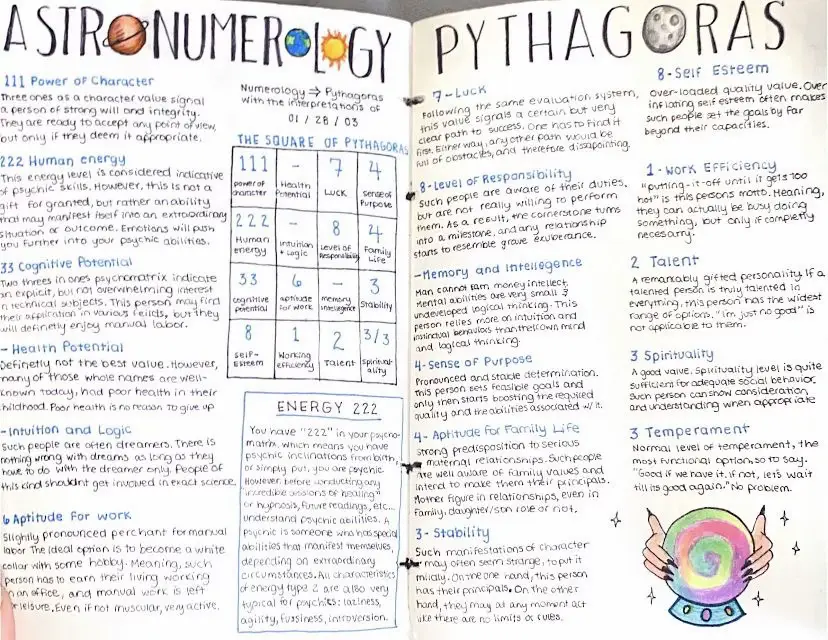 ASTRONUMEROLOGY
111 Power of Character
Three ones as a character value signal
a person of strong will and integrity.
They are ready to accept any point of view,
but only if they deem it appropriate.
222 Human energy
This energy level is considered indicative
of psychic skills. However, this is not a
gift for granted, but rather an ability
that may manifest itself into an extraordinary
situation or outcome. Emotions will push
you further into your psychic abilities.
33 Cognitive Potential
Two threes in ones psychomatrix indicate
an explicit, but not overwhelming interest
in technical subjects. This person may find
their application in various feilds, but they
will definetly enjoy manual labor.
- Health Potential
Definetly not the best value. However,
many of those whole names are well-
known today, had poor health in their
childhood. Poor health is no reason to give up
- Intuition and Logic
Such people are often dreamers. There is
nothing wrong with dreams as long as they
have to do with the dreamer only. People of
this kind shouldnt get involved in exact science.
6 Aptitude for work
Slightly pronounced perchant for manual
labor The ideal option is to become a white
collar with some hobby. Meaning, such
person has to earn their living working
in an office, and manual work is left
for leisure. Even if not muscular, very active.
Numerology ⇒ Pythagoras
with the interpretations of
01 / 28 / 03
THE SQUARE OF PYTHAGORAS
111 - 7 4
power of character Health Potential LUCK sense of Purpose
222 - 8 4
Human energy Intuition + Logic Level of Responsibility Family Life
33 6 - 3
cognitive potential aptitude for work memory intellegence Stability
8 1 2 3/3
self-Esteem Working efficiency Talent Spirituality
ENERGY 222
You have "222" in your psycho-
matrix, which means you have
psychic inclinations from birth,
or simply put, you are psychic.
However, before conducting any
"incredible sessions of healing"
or hypnosis, future readings, etc...
understand psychic abilities. A
psychic is someone who has special
abilities that manifest themselves,
depending on extraordinary
circumstances. All characteristics
of energy type 2 are also very
typical for psychics: laziness,
agility, fussiness, introversion.
PYTHAGORAS
7 - Luck
Following the same evaluation system,
this value signals a certain but very
clear path to success. One has to find it
first. Either way, any other path would be
full of obstacles, and therefore dissapointing.
8 - Level of Responsibility
Such people are aware of their duties,
but are not really willing to perform
them. As a result, the cornerstone turns
into a milestone, and any relationship
starts to resemble grave exuberance.
- Memory and Intellegence
Man cannot earn money intellect.
Mental abilities are very small &
undeveloped logical thinking. This
person relies more on intuition and
instinctual behaviors than their own mind
and logical thinking.
4 - Sense of Purpose
Pronounced and stable determination.
This person sets feasible goals and
only then starts boosting the required
quality and the abilities associated w/ it.
4 - Aptitude for Family Life
strong predisposition to serious
maternal relationships. Such people
are well aware of family values and
intend to make them their principals.
Mother figure in relationships, even in
family, daughter/son role or not.
3 - Stability
Such manifestations of character
may often seem strange, to put it
mildly. On the one hand, this person
has their principals. On the other
hand, they may at any moment act
like there are no limits or rules.
8 - Self Esteem
Over-loaded quality value. Over
inflating self esteem often makes
such people set the goals by far
beyond their capacities.
1 - Work Efficiency
"putting-it-off until it gets too
hot" is this persons motto. Meaning,
they can actually be busy doing
something, but only if completly
necesarry.
2 Talent
A remarkably gifted personality If a
talented person is truly talented in
everything, this person has the widest
range of options. "I'm just no good" is
not applicable to them.
3 Spirituality
A good value. Spirituality level is quite
sufficient for adequate social behavior.
Such person can show consideration,
and understanding when appropriate
3 Temperament
Normal level of temperament, the
most functional option, so to say.
"Good if we have it, if not, let's wait
till its good again." No problem.